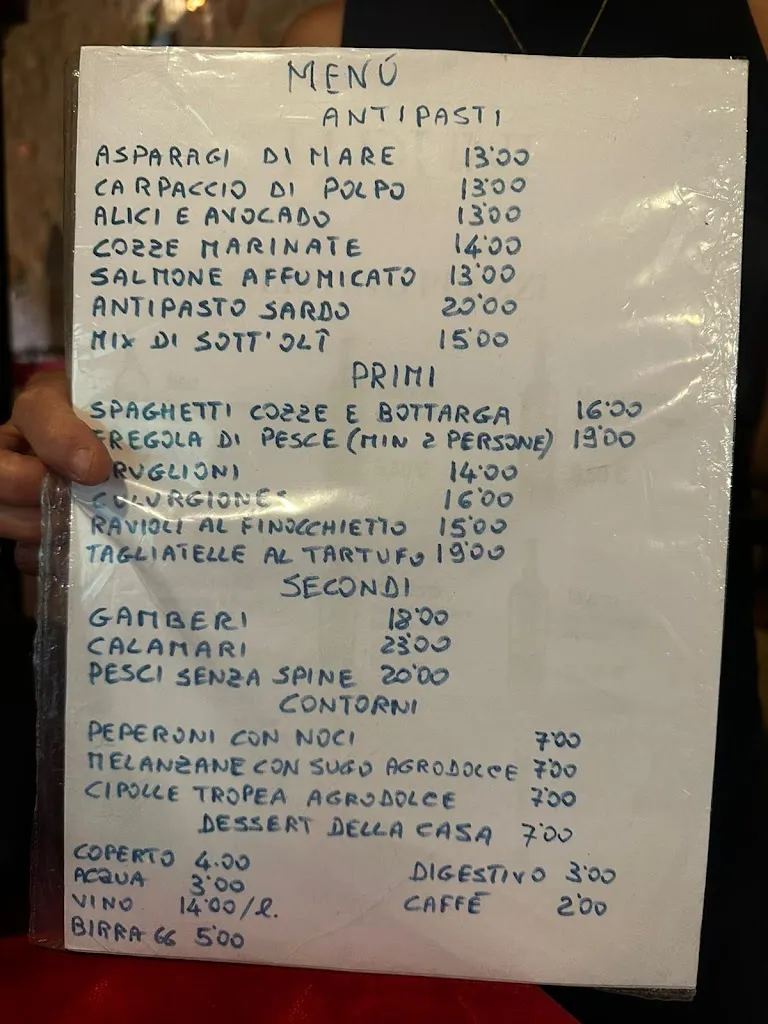 MENÚ
ANTIPASTI
ASPARAGI DI MARE 13'00
CARPACCIO DI POLPO 13'00
ALICI E AVOCADO 13'00
COZZE MARINATE 14'00
SALMONE AFFUMICATO 13'00
ANTIPASTO SARDO 20'00
MIX DI SOTT'OLÎ 15'00
PRIMI
SPAGHETTI COZZE E BOTTARGA 16'00
FREGOLA DI PESCE (MIN 2 PERSONE) 19'00
RUGLIONI 14'00
CULURGIONES 16'00
RAVIOLI AL FINOCCHIETTO 15'00
TAGLIATELLE AL TARTUFO 19'00
SECONDI
GAMBERI 18'00
CALAMARI 23'00
PESCI SENZA SPINE 20'00
CONTORNI
PEPERONI CON NOCI 7'00
MELANZANE CON SUGO AGRODOLCE 7'00
CIPOLLE TROPEA AGRODOLCE 7'00
DESSERT DELLA CASA 7'00
COPERTO 4.00
ACQUA 3'00
VINO 14'00/l.
BIRRA 66 5'00
DIGESTIVO 3'00
CAFFÉ 2'00